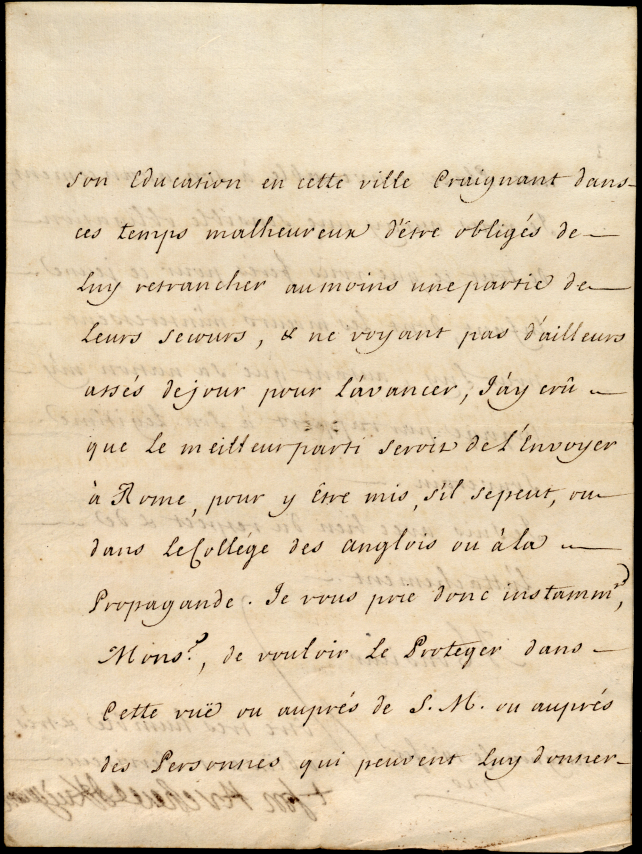 son Education en cette ville Craignant dans
ces temps malheureux d'être obligés de
Luy retrancher aumoins une partie de
Leurs secours, & ne voyant pas d'ailleurs
assés de jour pour L'avancer, J'ay crû
que Le meilleur parti seroit de L'Envoyer
à Rome, pour y Être mis, s'il se peut, ou
dans Le Collége des Anglois ou à la
Propagande. Je vous prie donc instammt,
Monsr., de vouloir Le Proteger dans
Cette vuë ou auprés de S. M. ou auprés
des Personnes qui peuvent Luy donner